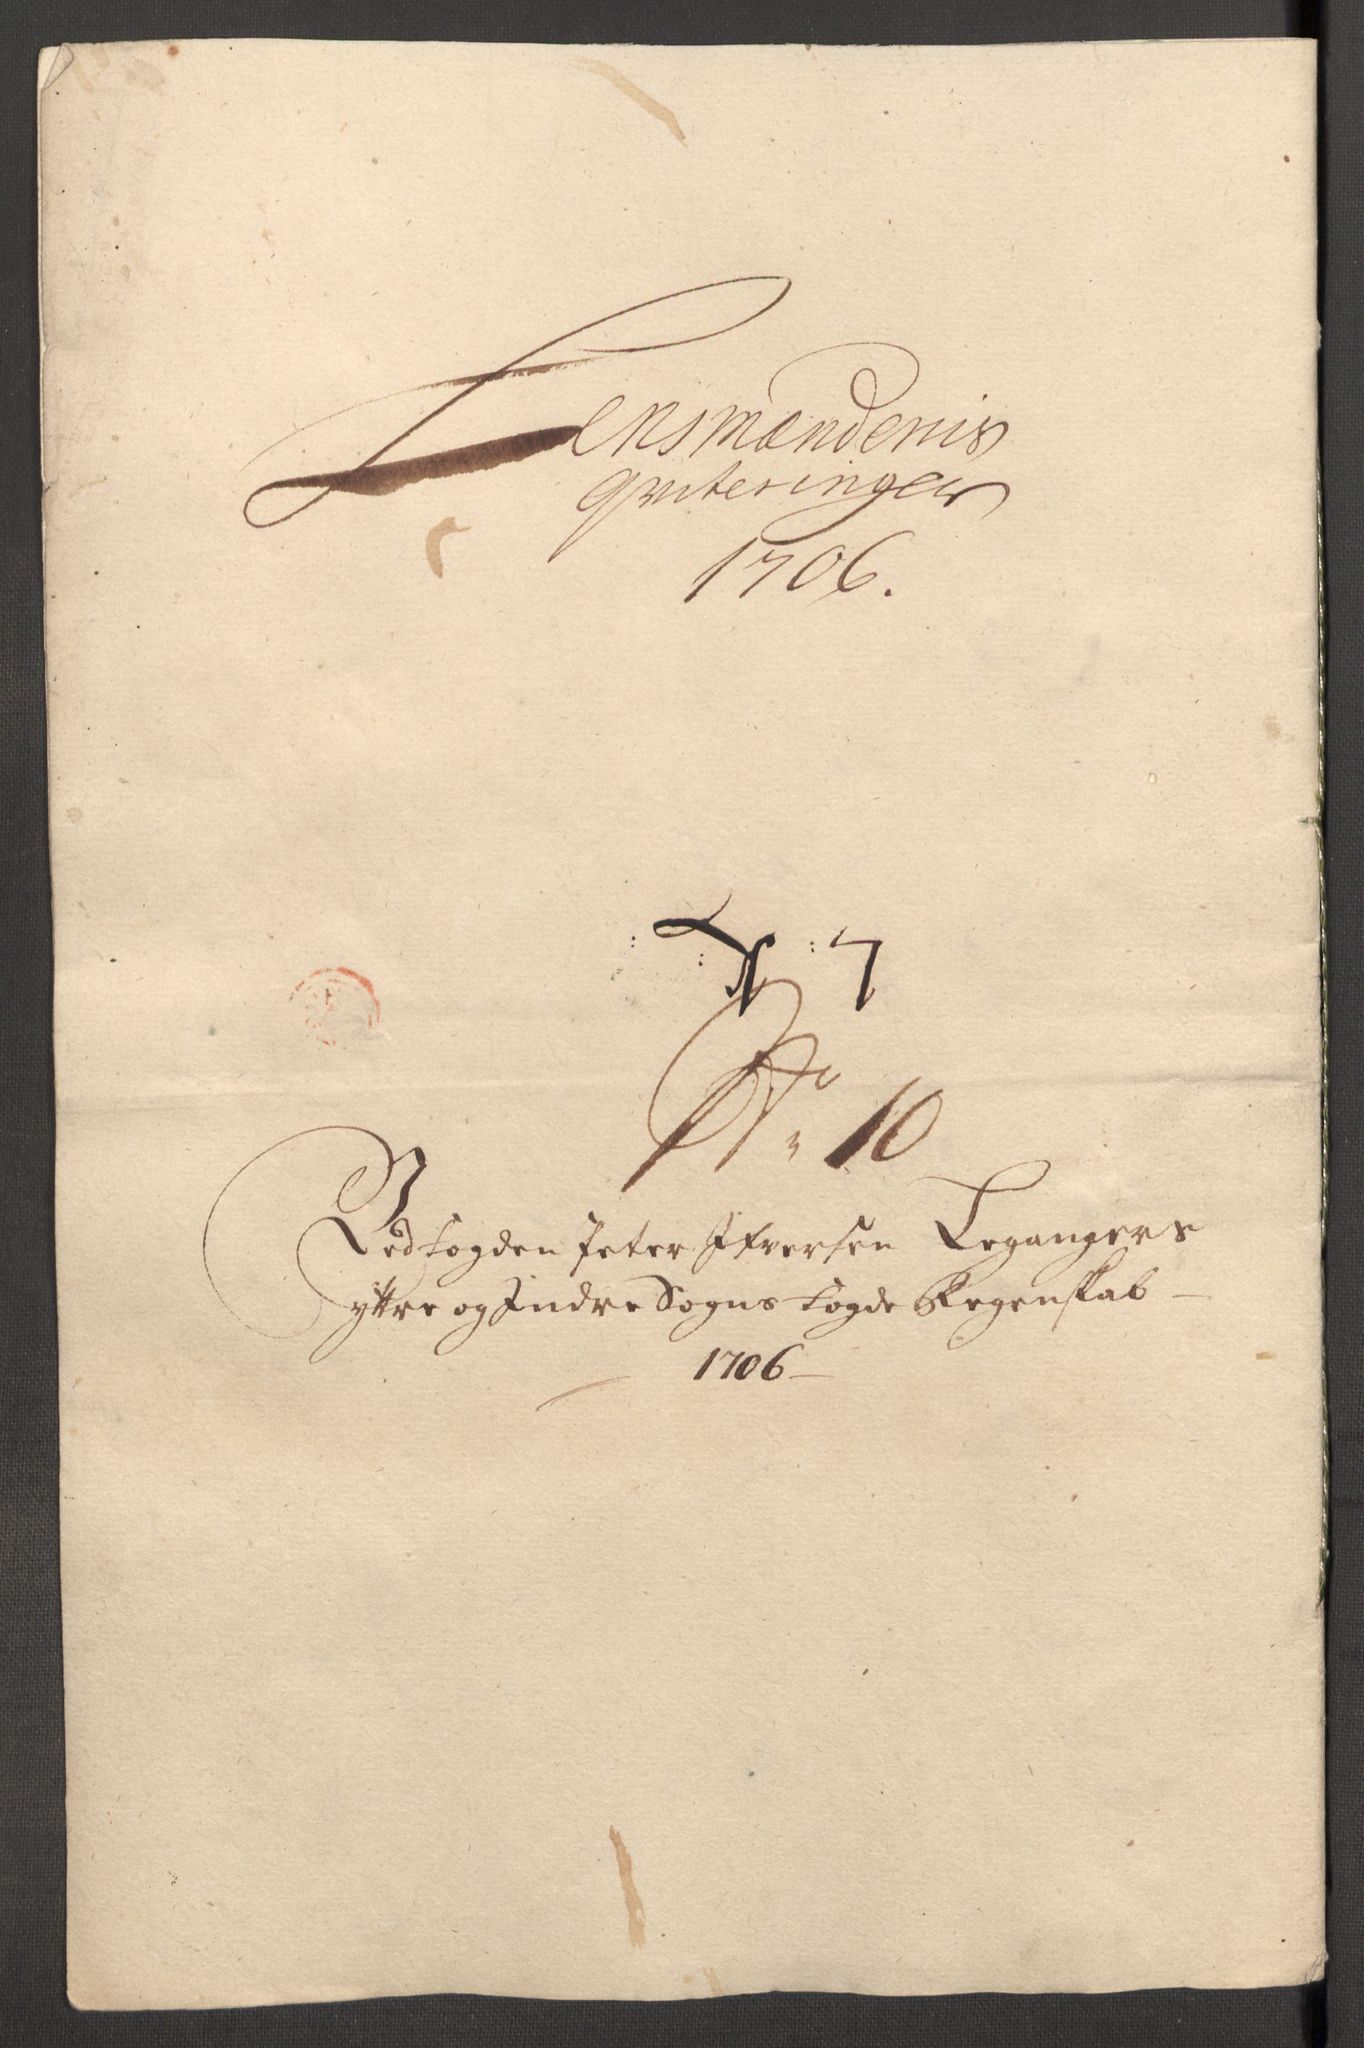 Lensmændenis
qviteringer
1706.
: 7
No. 10
Ved Fogden Peter Ifversen Legangers
yttre og Indre Sogns Fogde Regenskab
1706